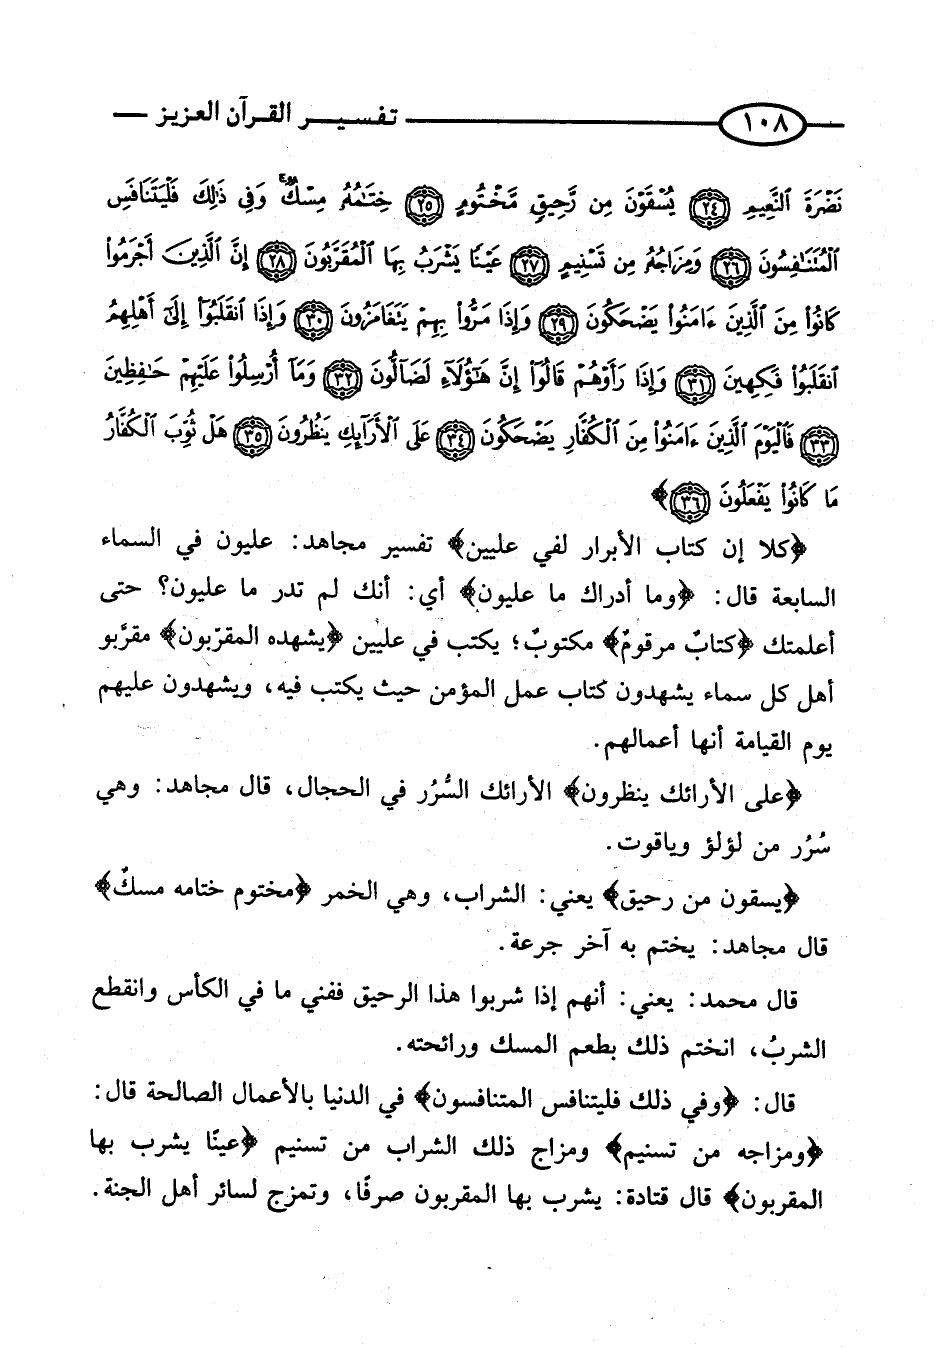 ١٠٨ تفسير القرآن العزيز
نَضْرَةَ ٱلنَّعِيمِ ٢٤ يُسْقَوْنَ مِن رَّحِيقٍ مَّخْتُومٍ ٢٥ خِتَٰمُهُۥ مِسْكٌ ۚ وَفِى ذَٰلِكَ فَلْيَتَنَافَسِ
ٱلْمُتَنَٰفِسُونَ ٢٦ وَمِزَاجُهُۥ مِن تَسْنِيمٍ ٢٧ عَيْنًا يَشْرَبُ بِهَا ٱلْمُقَرَّبُونَ ٢٨ إِنَّ ٱلَّذِينَ أَجْرَمُوا۟
كَانُوا۟ مِنَ ٱلَّذِينَ ءَامَنُوا۟ يَضْحَكُونَ ٢٩ وَإِذَا مَرُّوا۟ بِهِمْ يَتَغَامَزُونَ ٣٠ وَإِذَا ٱنقَلَبُوٓا۟ إِلَىٰٓ أَهْلِهِمُ
ٱنقَلَبُوا۟ فَكِهِينَ ٣١ وَإِذَا رَأَوْهُمْ قَالُوٓا۟ إِنَّ هَٰٓؤُلَآءِ لَضَآلُّونَ ٣٢ وَمَآ أُرْسِلُوا۟ عَلَيْهِمْ حَٰفِظِينَ
٣٣ فَٱلْيَوْمَ ٱلَّذِينَ ءَامَنُوا۟ مِنَ ٱلْكُفَّارِ يَضْحَكُونَ ٣٤ عَلَى ٱلْأَرَآئِكِ يَنظُرُونَ ٣٥ هَلْ ثُوِّبَ ٱلْكُفَّارُ
مَا كَانُوا۟ يَفْعَلُونَ ٣٦﴾
﴿كلا إن كتاب الأبرار لفي عليين﴾ تفسير مجاهد: عليون في السماء
السابعة قال: ﴿وما أدراك ما عليون﴾ أي: أنك لم تدر ما عليون؟ حتى
أعلمتك ﴿كتابٌ مرقومٌ﴾ مكتوبٌ؛ يكتب في عليين ﴿يشهده المقرّبون﴾ مقرَّبو
أهل كل سماء يشهدون كتاب عمل المؤمن حيث يكتب فيه، ويشهدون عليهم
يوم القيامة أنها أعمالهم.
﴿على الأرائك ينظرون﴾ الأرائك السُّرُر في الحجال، قال مجاهد: وهي
سُرُر من لؤلؤ وياقوت.
﴿يسقون من رحيق﴾ يعني: الشراب، وهي الخمر ﴿مختوم ختامه مسكٌ﴾
قال مجاهد: يختم به آخر جرعة.
قال محمد: يعني: أنهم إذا شربوا هذا الرحيق ففني ما في الكأس وانقطع
الشربُ، انختم ذلك بطعم المسك ورائحته.
قال: ﴿وفي ذلك فليتنافس المتنافسون﴾ في الدنيا بالأعمال الصالحة قال:
﴿ومزاجه من تسنيم﴾ ومزاج ذلك الشراب من تسنيم ﴿عينًا يشرب بها
المقربون﴾ قال قتادة: يشرب بها المقربون صرفًا، وتمزج لسائر أهل الجنة.